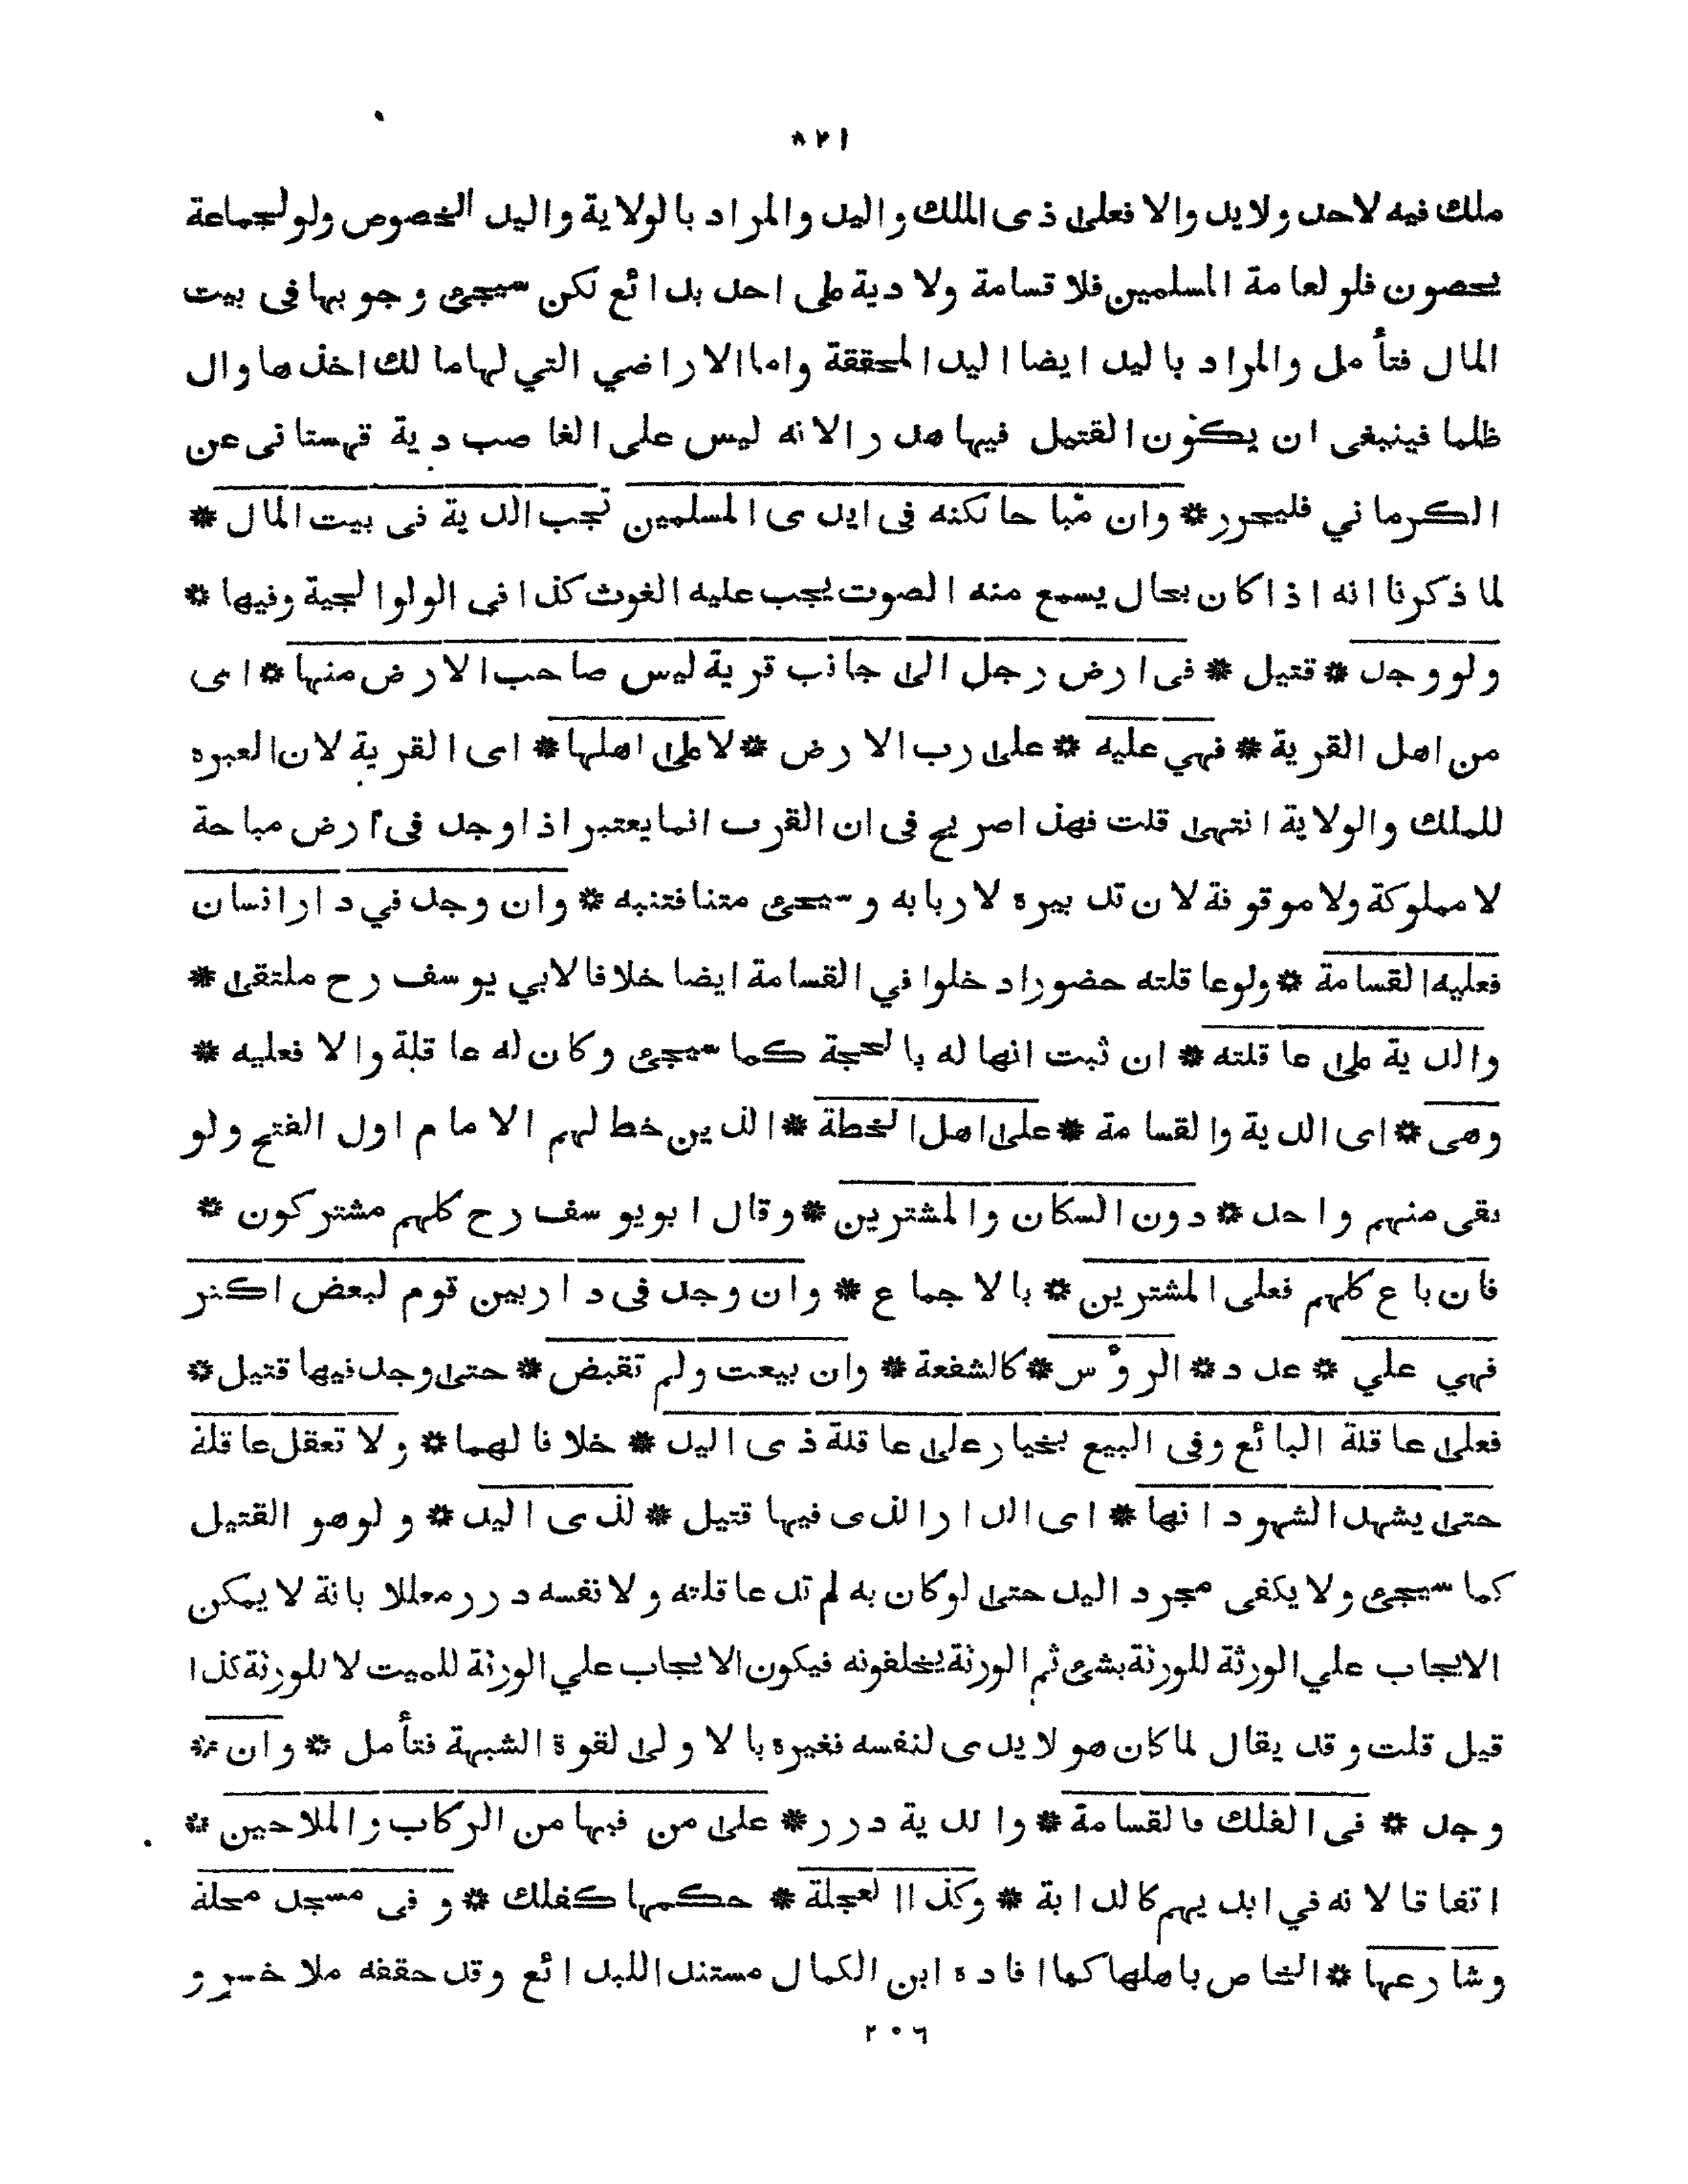 ٨٢١
ملك فيه لاحد ولايد والا فعلى ذى الملك واليد والمراد بالولاية واليد الخصوص ولولجماعة
يحصون فلو لعامة المسلمين فلا قسامة ولا دية على احد بدائع لكن سيجئ وجوبها فى بيت
المال فتأمل والمراد باليد ايضا اليد المحققة واما الاراضي التي لها مالك اخذها وال
ظلما فينبغى ان يكون القتيل فيها هدرا لانه ليس على الغاصب دية قهستانى عن
الكرماني فليحرر * وان مباحا لكنه فى ايدى المسلمين تجب الدية فى بيت المال *
لما ذكرنا انه اذا كان بحال يسمع منه الصوت يجب عليه الغوث كذا فى الولوالجية وفيها *
ولو وجد * قتيل * فى ارض رجل الى جانب قرية ليس صاحب الارض منها * اى
من اهل القرية * فهي عليه * على رب الارض * لا على اهلها * اى القرية لان العبره
للملك والولاية انتهى قلت فهذا صريح فى ان القرب انما يعتبر اذا وجد فى ارض مباحة
لا مملوكة ولا موقوفة لان تدبيره لاربابه وسيجئ متنا فتنبه * وان وجد في دار انسان
فعليه القسامة * ولو عاقلته حضورا دخلوا في القسامة ايضا خلافا لابي يوسف رح ملتقى *
والدية على عاقلته * ان ثبت انها له بالحجة كما سيجئ وكان له عاقلة والا فعليه *
وهى * اى الدية والقسامة * على اهل الخطة * الذين خط لهم الامام اول الفتح ولو
بقى منهم واحد * دون السكان والمشترين * وقال ابويوسف رح كلهم مشتركون *
فان باع كلهم فعلى المشترين * بالاجماع * وان وجد فى دار بين قوم لبعض اكثر
فهي علي * عدد * الرؤس * كالشفعة * وان بيعت ولم تقبض * حتى وجد فيها قتيل *
فعلى عاقلة البائع وفى البيع بخيار على عاقلة ذى اليد * خلافا لهما * ولا تعقل عاقلة
حتى يشهد الشهود انها * اى الدار الذى فيها قتيل * لذى اليد * ولو هو القتيل
كما سيجئ ولا يكفى مجرد اليد حتى لو كان به لم تد عاقلته ولا نفسه درر معللا بانة لا يمكن
الايجاب علي الورثة للورثة بشئ ثم الورثة يخلفونه فيكون الايجاب علي الورثة للميت لا للورثة كذا
قيل قلت وقد يقال لما كان هو لا يدى لنفسه فغيره بالاولى لقوة الشبهة فتأمل * وان *
وجد * فى الفلك فالقسامة * والدية درر * على من فيها من الركاب والملاحين *
اتفاقا لانه في ايديهم كالدابة * وكذا العجلة * حكمها كفلك * و فى مسجد محلة
وشارعها * الخاص باهلها كما افاده ابن الكمال مستندا للبدائع وقد حققه ملا خسرو
٢٠٦